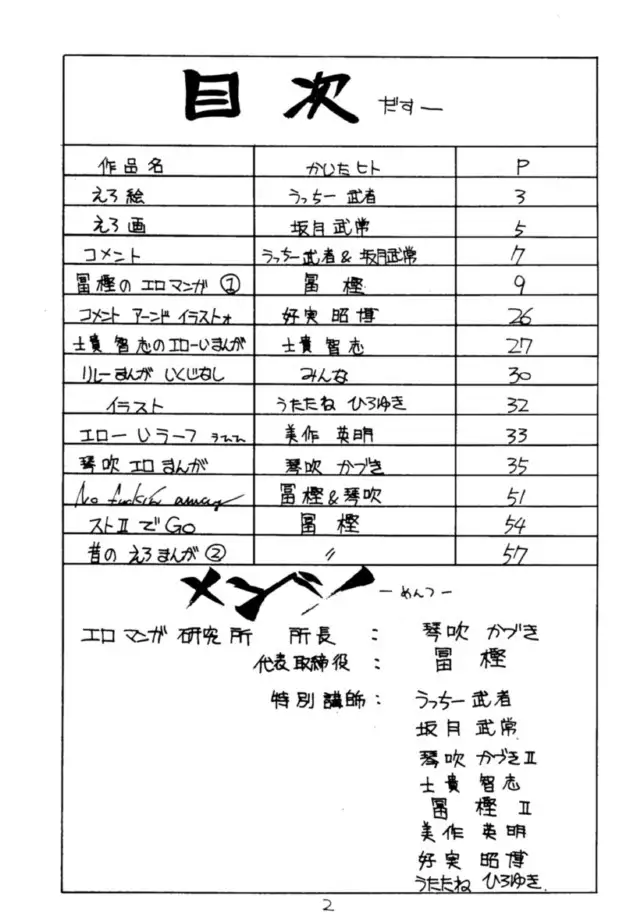 目次 だすー
作品名 かいたヒト P
えろ絵 うっちー武者 3
えろ画 坂月武常 5
コメント うっちー武者&坂月武常 7
冨樫のエロマンガ ① 冨樫 9
コメント アーンド イラストォ 好実昭博 26
士貴智志のエローいまんが 士貴智志 27
りレーまんが いくじなし みんな 30
イラスト うたたね ひろゆき 32
エローいラーフ 美作英明 33
琴吹エロまんが 琴吹かづき 35
No fuckin 冨樫&琴吹 51
ストⅡでGo 冨樫 54
昔のえろまんが ② 〃 57
メンツ ーめんつー
エロマンガ研究所 所長 : 琴吹かづき
代表取締役 : 冨樫
特別講師 : うっちー武者
坂月武常
琴吹かづきⅡ
士貴智志
冨樫Ⅱ
美作英明
好実昭博
うたたね ひろゆき
2